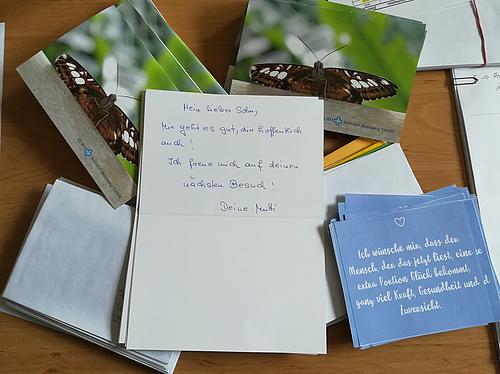 Mein lieber Sohn,
Mir geht es gut, dir hoffentlich
auch !
Ich freue mich auf deinen
nächsten Besuch !
Deine Mutti
Ich wünsche mir, dass der
Mensch, der das jetzt liest, eine
extra Portion Glück bekommt,
ganz viel Kraft, Gesundheit und
Zuversicht.